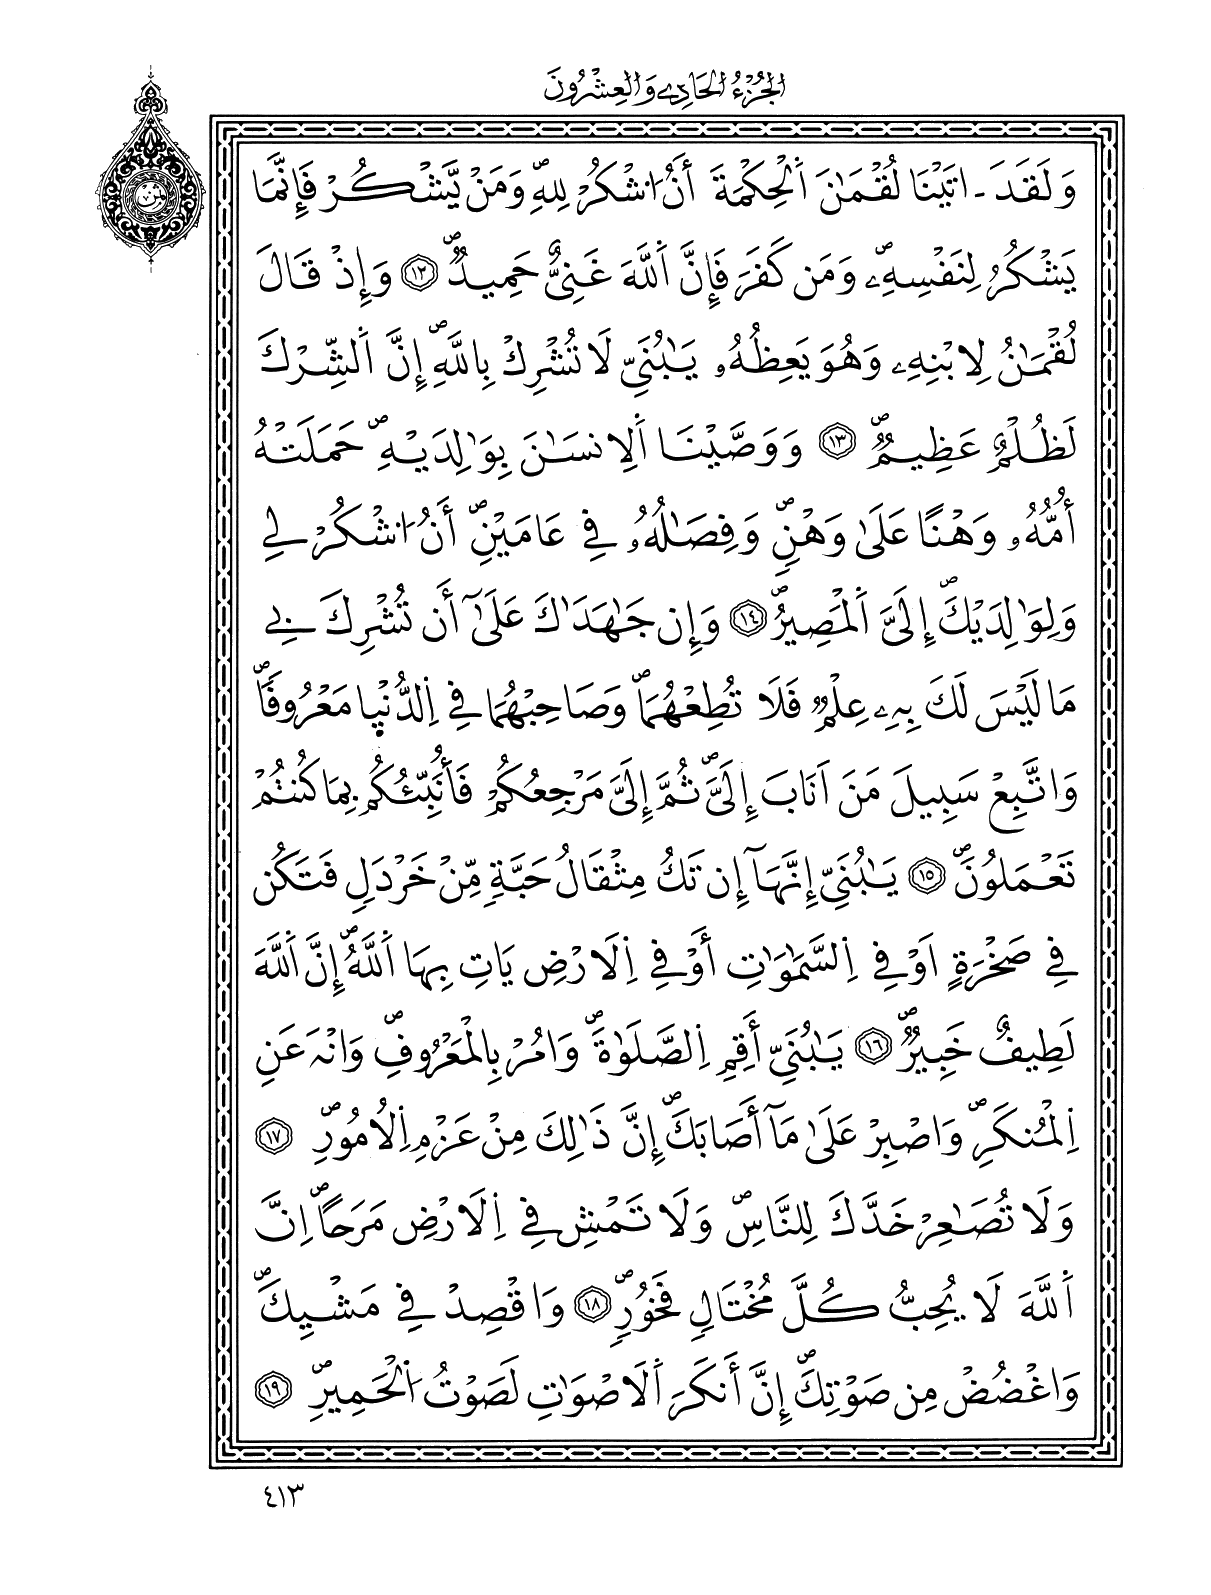 الجُزْءُ الحَادِي وَالعِشْرُونَ
وَلَقَدَ ـ اتَيْنَا لُقْمَٰنَ اَ۬لْحِكْمَةَ أَنُ ا۟شْكُرْ لِلهِۖ وَمَنْ يَّشْكُرْ فَإِنَّمَا
يَشْكُرُ لِنَفْسِهِۦۖ وَمَن كَفَرَ فَإِنَّ اَ۬للَّهَ غَنِيٌّ حَمِيدٞۖ ١٢ وَإِذْ قَالَ
لُقْمَٰنُ لِابْنِهِۦ وَهُوَ يَعِظُهُۥ يَٰبُنَيِّ لَا تُشْرِكْ بِاللَّهِۖ إِنَّ اَ۬لشِّرْكَ
لَظُلْمٌ عَظِيمٞۖ ١٣ وَوَصَّيْنَا اَ۬لِانسَٰنَ بِوَٰلِدَيْهِۖ حَمَلَتْهُ
أُمُّهُۥ وَهْناً عَلَىٰ وَهْنٖۖ وَفِصَٰلُهُۥ فِي عَامَيْنِۖ أَنُ ا۟شْكُرْ لِي
وَلِوَٰلِدَيْكَۖ إِلَيَّ اَ۬لْمَصِيرُۖ ١٤ وَإِن جَٰهَدَٰكَ عَلَىٰٓ أَن تُشْرِكَ بِي
مَا لَيْسَ لَكَ بِهِۦ عِلْمٞ فَلَا تُطِعْهُمَاۖ وَصَاحِبْهُمَا فِي اِ۬لدُّنْيَا مَعْرُوفاٗۖ
وَاتَّبِعْ سَبِيلَ مَنَ اَنَابَ إِلَيَّۖ ثُمَّ إِلَيَّ مَرْجِعُكُمْ فَأُنَبِّئُكُم بِمَا كُنتُمْ
تَعْمَلُونَۖ ١٥ يَٰبُنَيِّ إِنَّهَآ إِن تَكُ مِثْقَالُ حَبَّةٖ مِّنْ خَرْدَلٖ فَتَكُن
فِي صَخْرَةٍ اَوْ فِي اِ۬لسَّمَٰوَٰتِ أَوْ فِي اِ۬لَارْضِ يَاتِ بِهَا اَ۬للَّهُۖ إِنَّ اَ۬للَّهَ
لَطِيفٌ خَبِيرٞۖ ١٦ يَٰبُنَيِّ أَقِمِ اِ۬لصَّلَوٰةَۖ وَامُرْ بِالْمَعْرُوفِۖ وَانْهَ عَنِ
اِ۬لْمُنكَرِۖ وَاصْبِرْ عَلَىٰ مَآ أَصَابَكَۖ إِنَّ ذَٰلِكَ مِنْ عَزْمِ اِ۬لُامُورِۖ ١٧
وَلَا تُصَٰعِرْ خَدَّكَ لِلنَّاسِۖ وَلَا تَمْشِ فِي اِ۬لَارْضِ مَرَحاًۖ اِنَّ
اَ۬للَّهَ لَا يُحِبُّ كُلَّ مُخْتَالٖ فَخُورٖۖ ١٨ وَاقْصِدْ فِي مَشْيِكَۖ
وَاغْضُضْ مِن صَوْتِكَۖ إِنَّ أَنكَرَ اَ۬لَاصْوَٰتِ لَصَوْتُ اُ۬لْحَمِيرِۖ ١٩
٤١٣